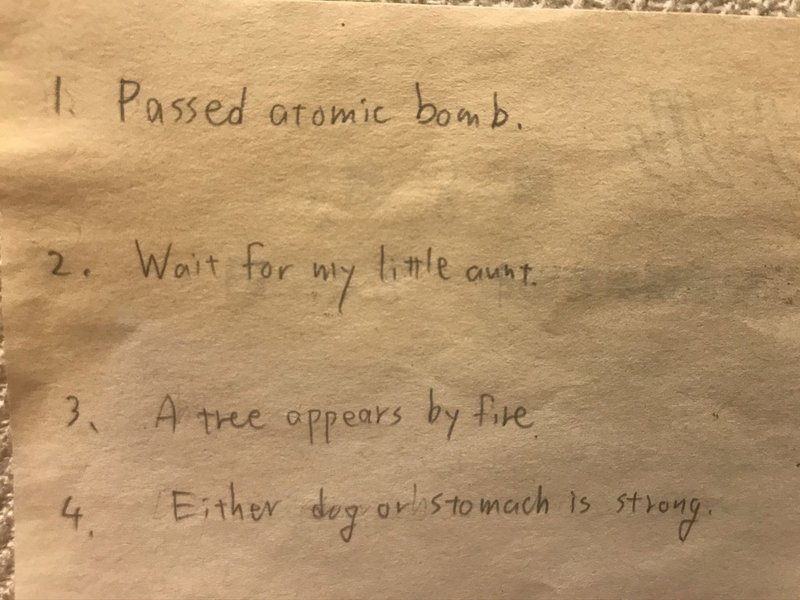 1. Passed atomic bomb.
2. Wait for my little aunt.
3、 A tree appears by fire
4. Either dog or stomach is strong.